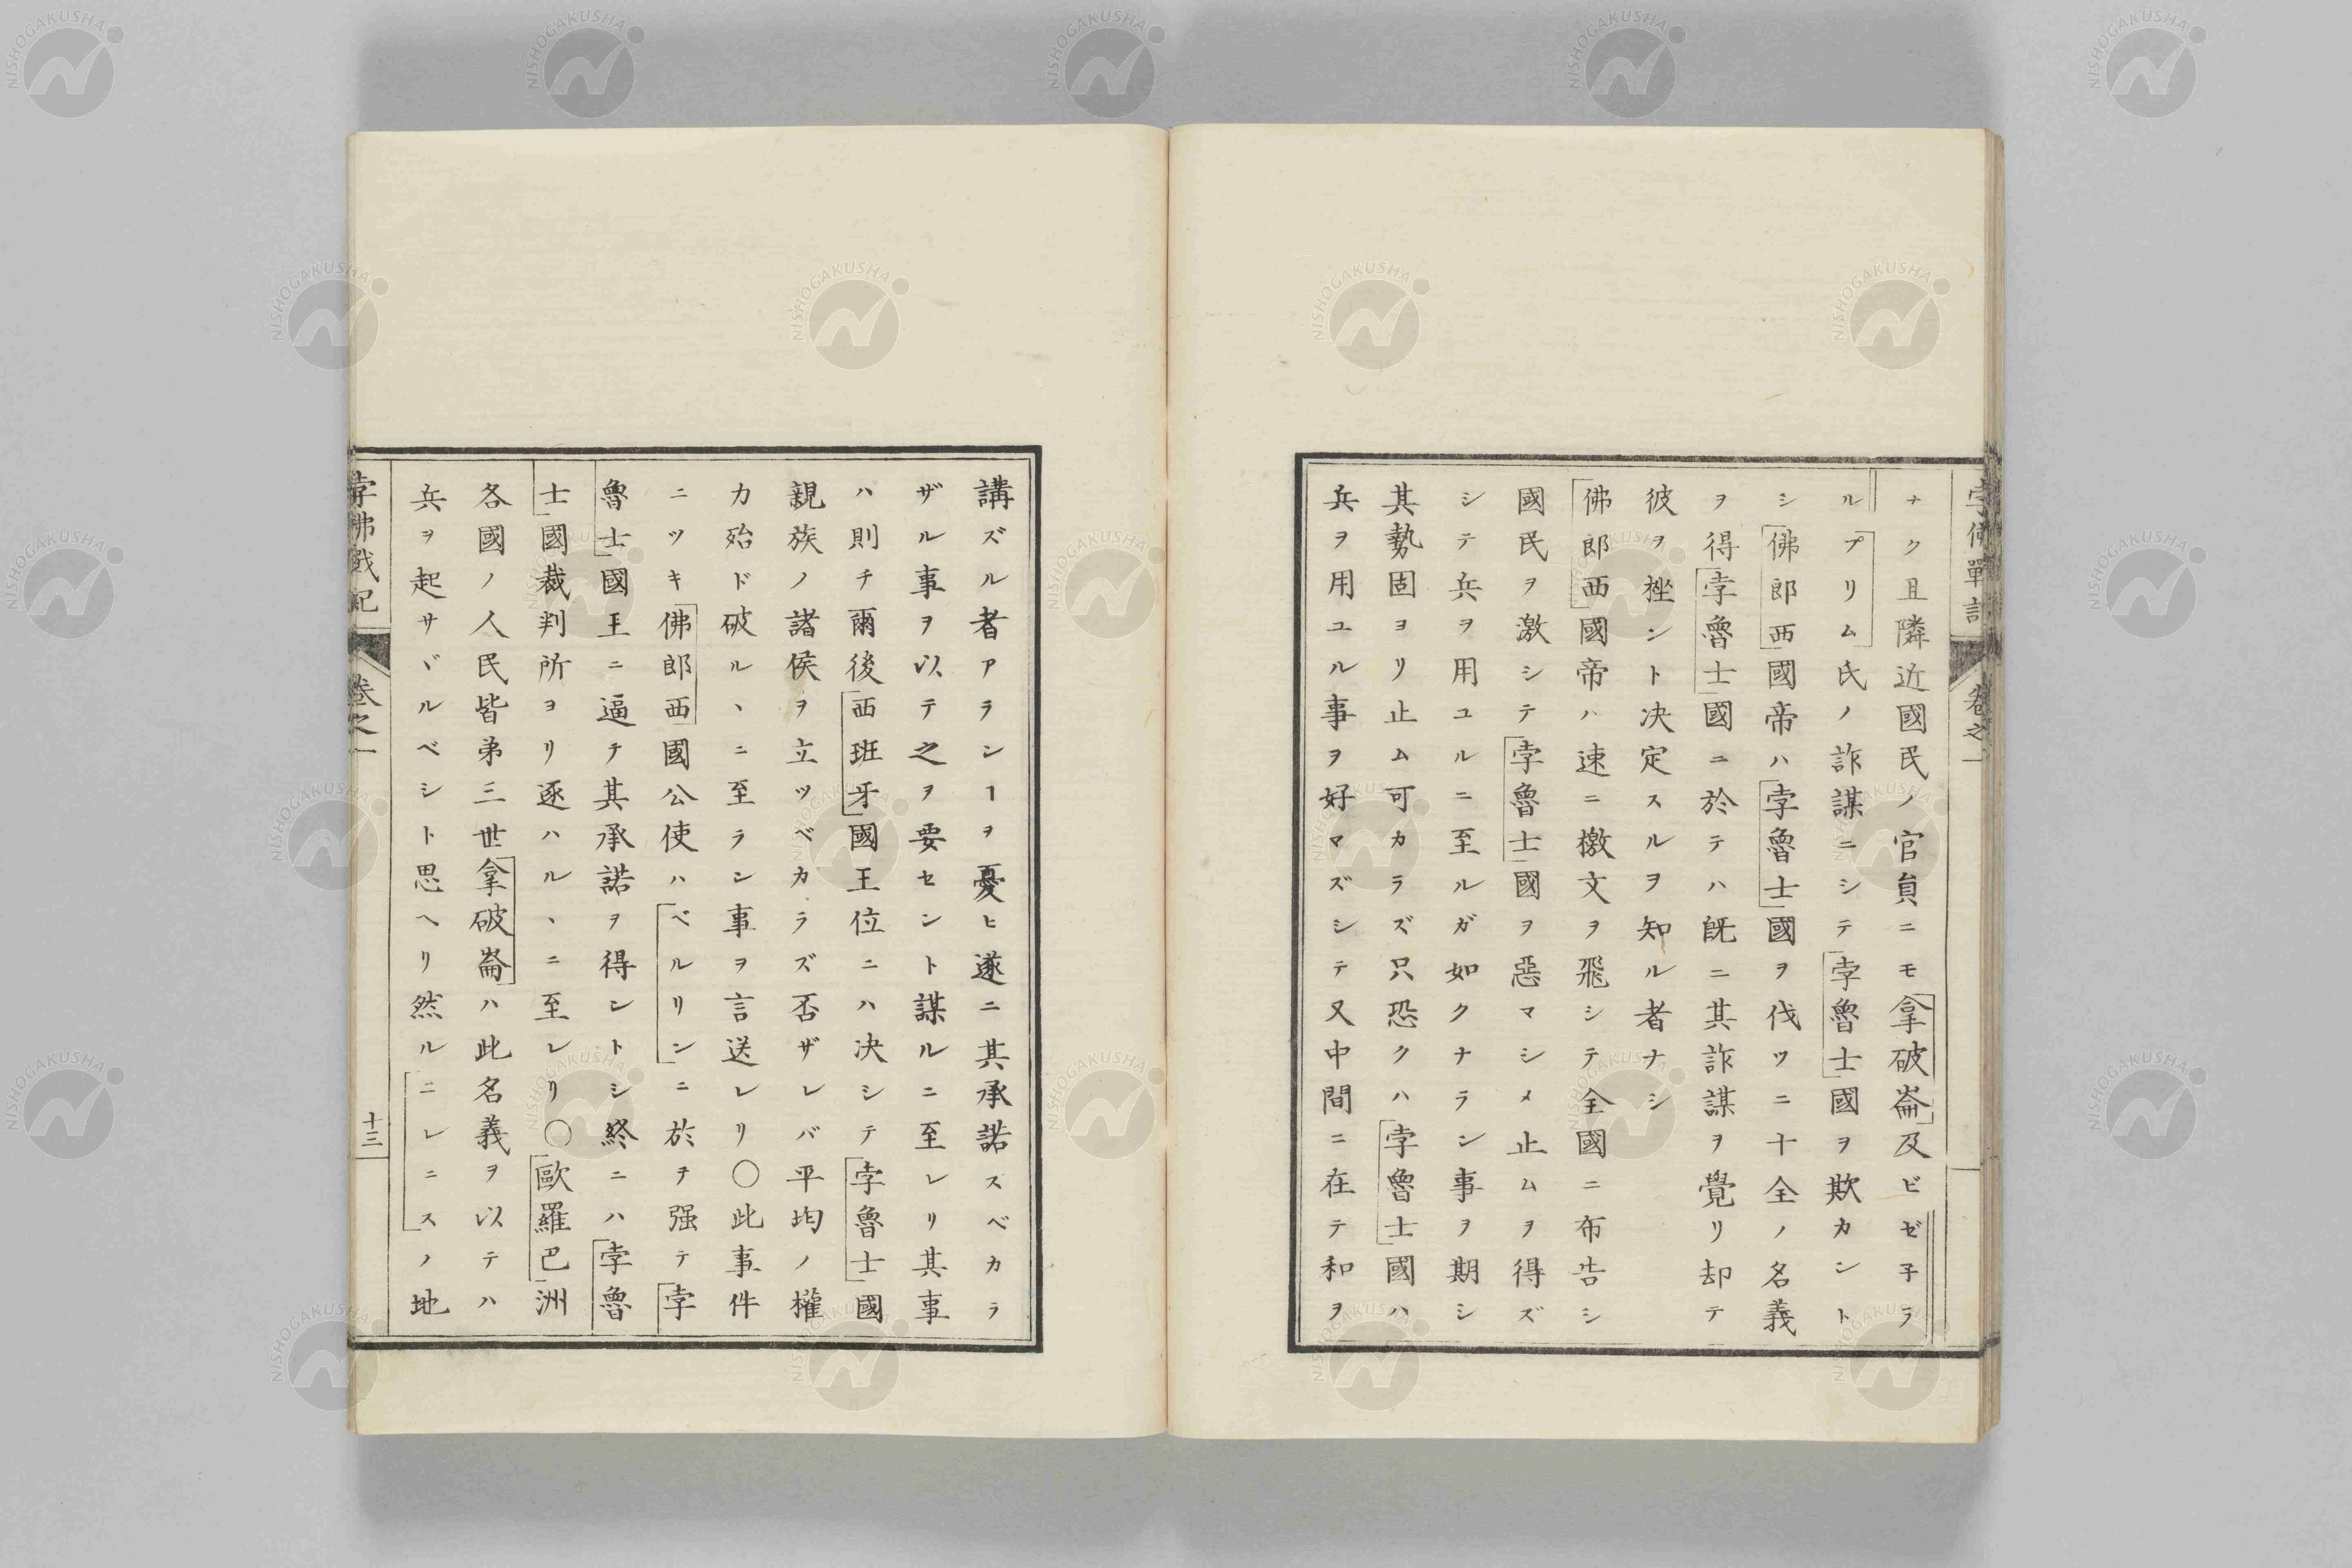 孛佛戰記 卷之一
ナク且隣近國民ノ官員ニモ拿破崙及ビゼ子ラ
ルプリム氏ノ詐謀ニシテ孛魯士國ヲ欺カント
シ佛郎西國帝ハ孛魯士國ヲ伐ツニ十全ノ名義
ヲ得孛魯士國ニ於テハ旣ニ其詐謀ヲ覺リ却テ
彼ヲ挫ント决定スルヲ知ル者ナシ
佛郎西國帝ハ速ニ檄文ヲ飛シテ全國ニ布告シ
國民ヲ激シテ孛魯士國ヲ惡マシメ止ムヲ得ズ
シテ兵ヲ用ユルニ至ルガ如クナラン事ヲ期シ
其勢固ヨリ止ム可カラズ只恐クハ孛魯士國ハ
兵ヲ用ユル事ヲ好マズシテ又中間ニ在テ和ヲ
講ズル者アランヿヲ憂ヒ遂ニ其承諾スベカラ
ザル事ヲ以テ之ヲ要セント謀ルニ至レリ其事
ハ則チ爾後西班牙國王位ニハ决シテ孛魯士國
親族ノ諸侯ヲ立ツベカラズ否ザレバ平均ノ權
カ殆ド破ルヽニ至ラン事ヲ言送レリ〇此事件
ニツキ佛郎西國公使ハベルリンニ於テ强テ孛
魯士國王ニ逼テ其承諾ヲ得ントシ終ニハ孛魯
士國裁判所ヨリ逐ハルヽニ至レリ〇歐羅巴洲
各國ノ人民皆弟三世拿破崙ハ此名義ヲ以テハ
兵ヲ起サヾルベシト思ヘリ然ルニレニスノ地
孛佛戰記 卷之一 十三
NISHOGAKUSHA